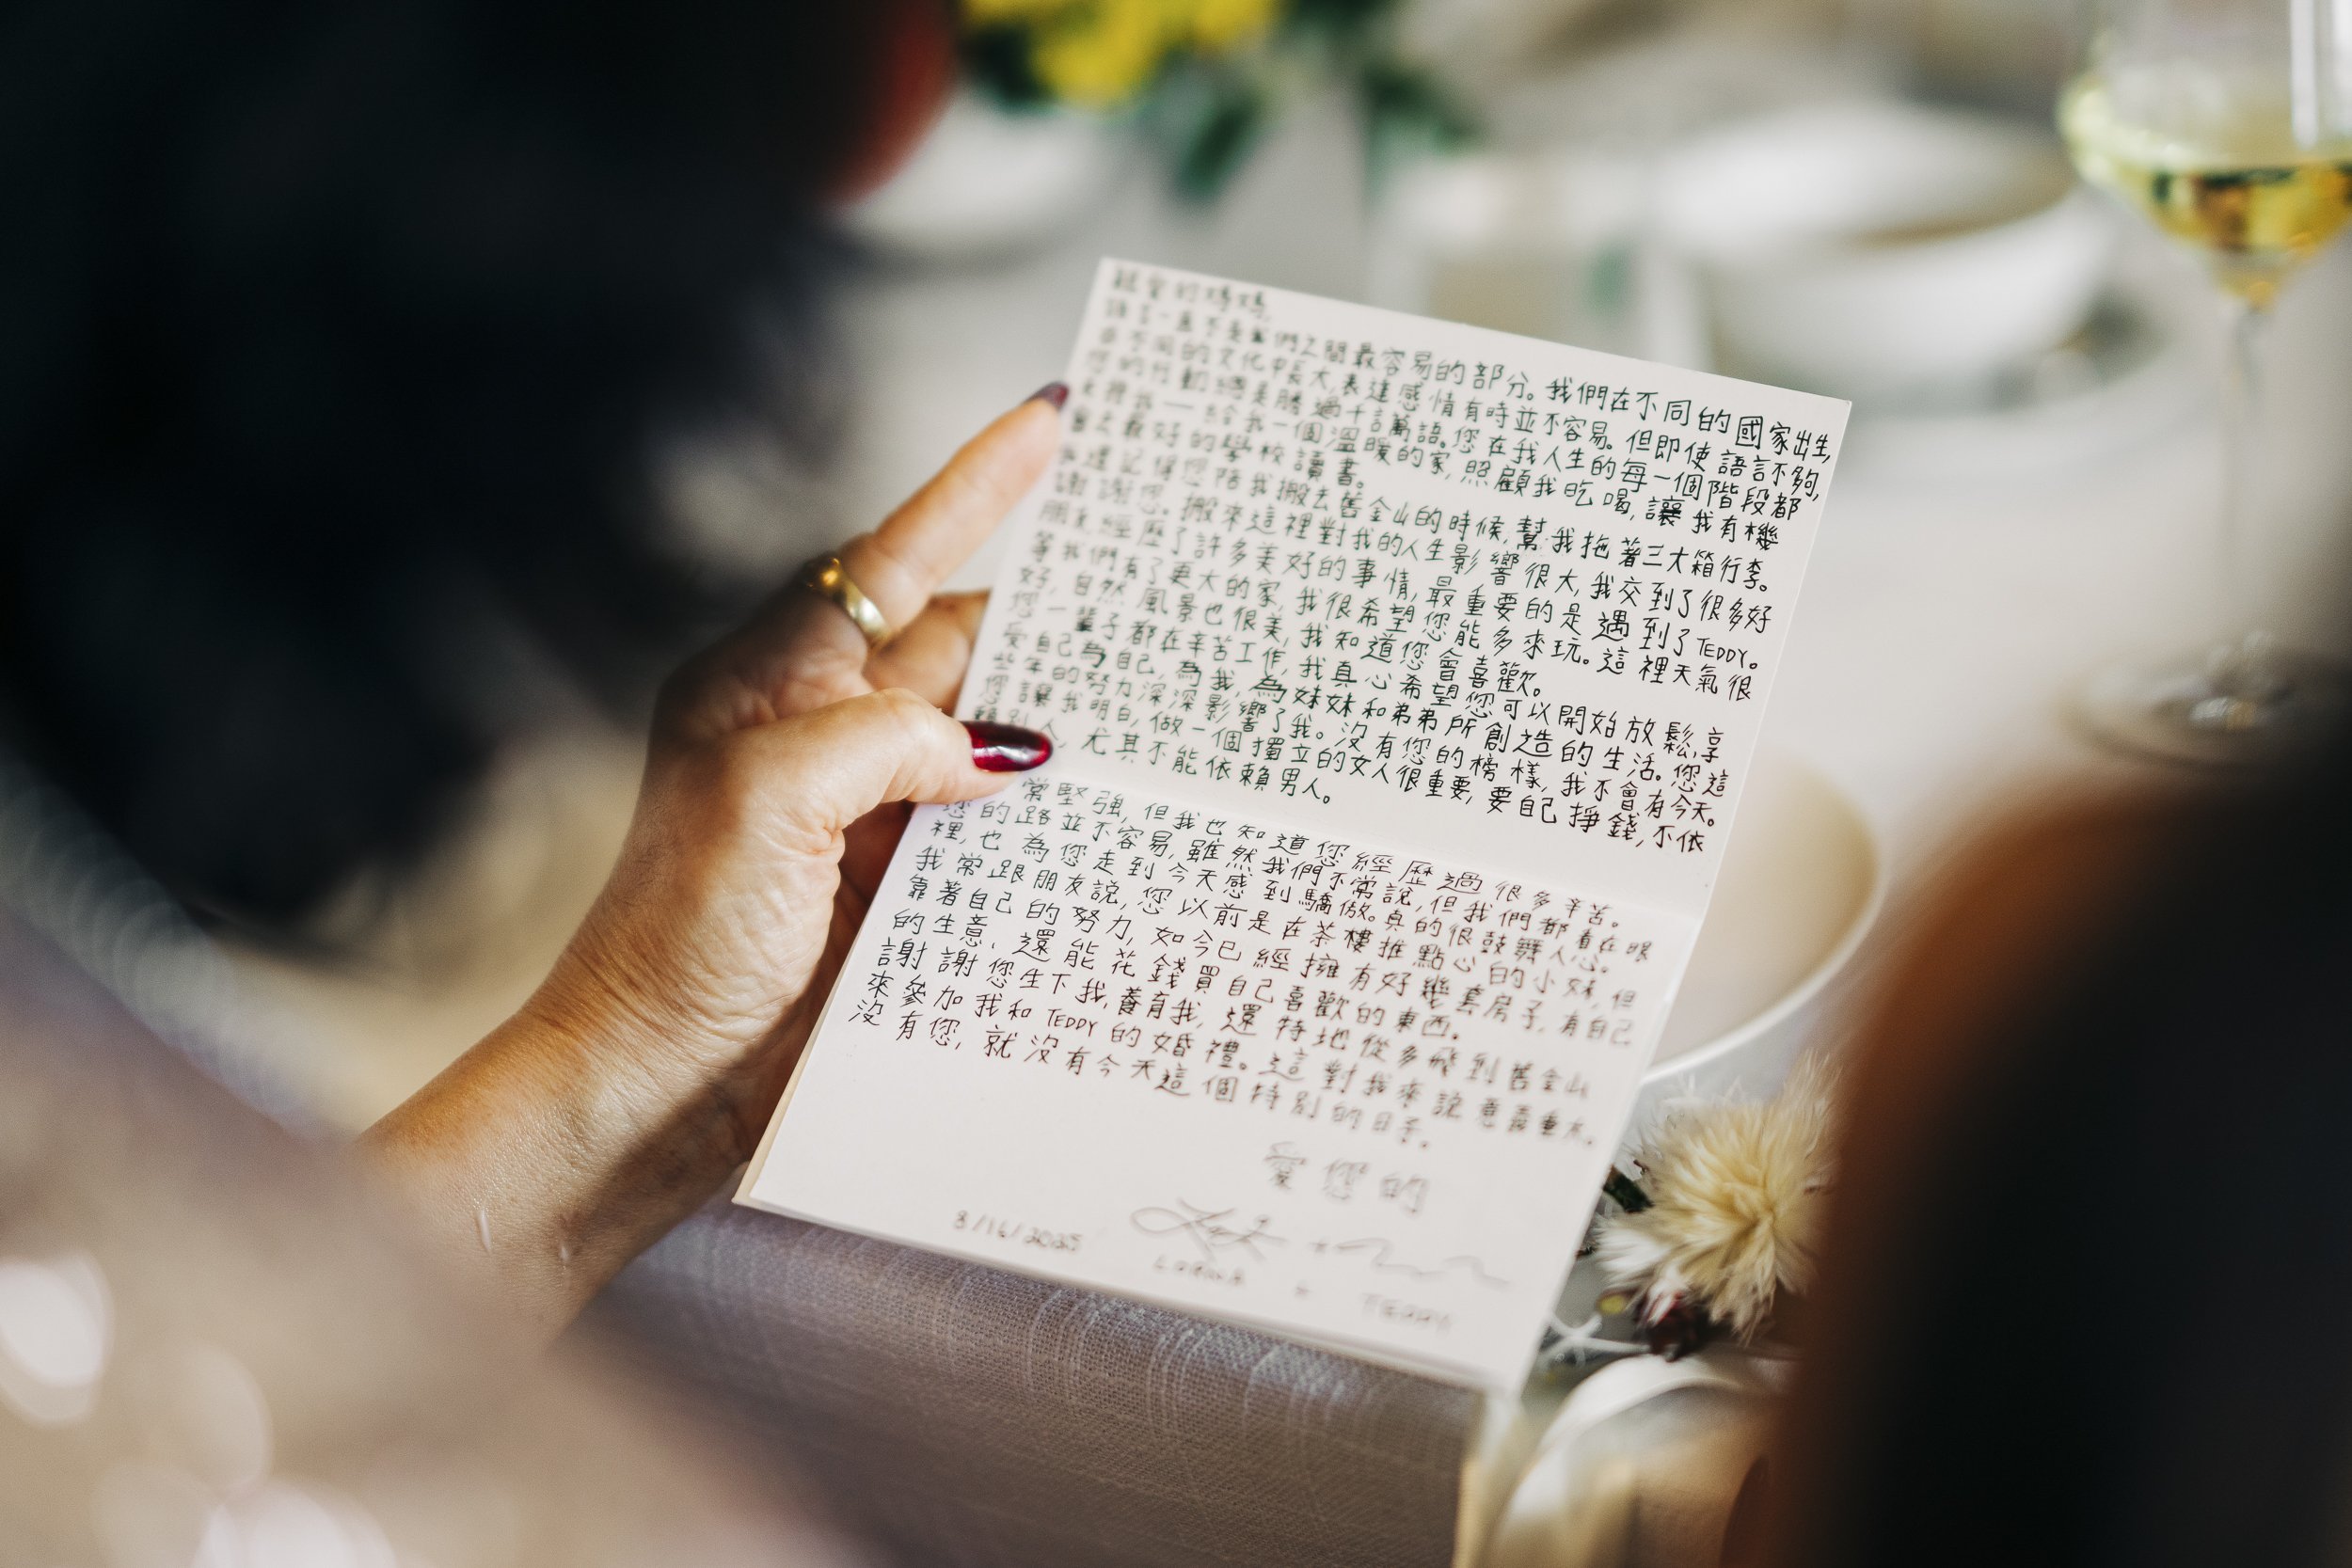 親愛的媽媽,
語言一直不是我們之間最容易的部分。我們在不同的國家出生,
在不同的文化中長大,表達感情有時並不容易。但即使語言不夠,
您的行動總是勝過千言萬語。您在我人生的每一個階段都
支持我——給我一個溫暖的家,照顧我吃喝,讓我有機
會去最好的學校讀書。
我還記得您陪我搬去舊金山的時候,幫我拖著三大箱行李。
謝謝您。搬來這裡對我的人生影響很大,我交到了很多好
朋友,經歷了許多美好的事情,最重要的是遇到了TEDDY。
等我們有了更大的家,我很希望您能多來玩。這裡天氣很
好,自然風景也很美,我知道您會喜歡。
您一輩子都在辛苦工作,我真心希望您可以開始放鬆,享
受自己為自己,為我,為妹妹和弟弟所創造的生活。您這
些年的努力,深深影響了我。沒有您的榜樣,我不會有今天。
您讓我明白,做一個獨立的女人很重要,要自己掙錢,不依
賴別人,尤其不能依賴男人。
常堅強,但我也知道您經歷過很多辛苦。
您的路並不容易,雖然我們不常說,但我們都看在眼
裡,也為您走到今天感到驕傲。真的很鼓舞人心。
我常跟朋友說,您以前是在茶樓推點心的小妹,但
靠著自己的努力,如今已經擁有好幾套房子,有自己
的生意,還能花錢買自己喜歡的東西。
謝謝您生下我,養育我,還特地從多飛到舊金山
來參加我和TEDDY的婚禮。這對我來說意義重大。
沒有您,就沒有今天這個特別的日子。
愛您的
8/16/2025
+ TEDDY